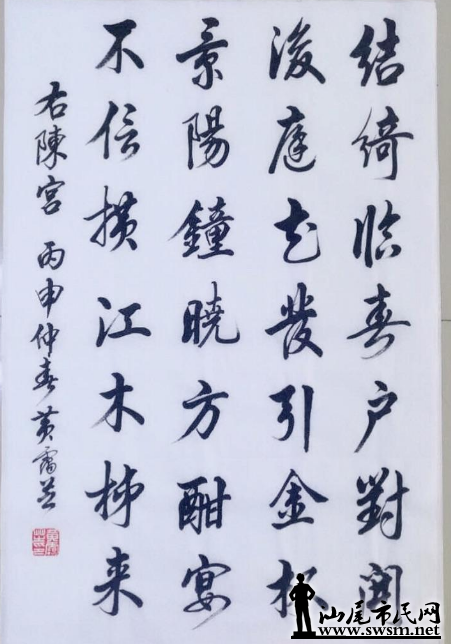 结绮临春户对開
後庭花發引金杯
景陽鐘曉方酣宴
不信横江木柹来
右陳宫 丙申仲春 黄
汕尾市民网
www.swsm.net